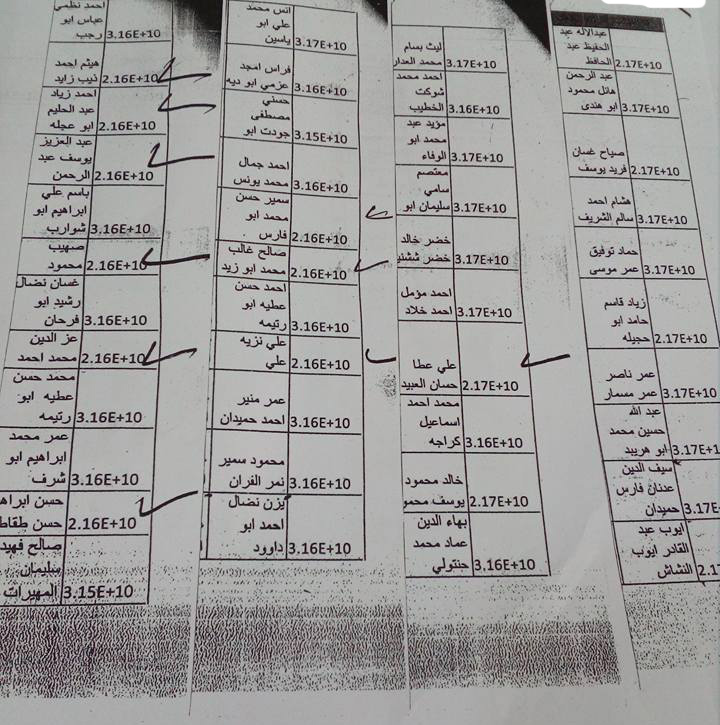 عبدالاله عبد
الحفيظ عبد
الحافظ 2.17E+10
عبد الرحمن
هائل محمود
ابو هندي 3.17E+10
صباح غسان
فريد يوسف 2.17E+10
هشام احمد
سالم الشريف 3.17E+10
حماد توفيق
عمر موسى 3.17E+10
زياد قاسم
حامد ابو
حجيله 2.17E+10
عمر ناصر
عمر مسمار 3.17E+10
عبد الله
حسين محمد
ابو هربيد 3.17E+1
سيف الدين
عدنان فارس
حميدان 3.17E
ايوب عبد
القادر ايوب
النشاش 2.17
ليث بسام
محمد العدار 3.17E+10
احمد محمد
شوكت
الخطيب 3.16E+10
مؤيد عبد
محمد ابو
الوفاء 3.17E+10
معتصم
سامي
سليمان ابو 3.17E+10
خضر خالد
خضر ششني 3.17E+10
احمد مزمل
احمد خلاد 3.17E+10
علي عطا
حسان العبيد 2.17E+10
محمد احمد
اسماعيل
كراجه 3.16E+10
خالد محمود
يوسف محمو 2.17E+10
بهاء الدين
عماد محمد
جنتولي 3.16E+10
انس محمد
علي ابو
ياسين 3.17E+10
فراس امجد
عزمي ابو ديه 3.16E+10
حسني
مصطفى
جودت ابو 3.15E+10
احمد جمال
محمد يونس 3.16E+10
سمير حسن
محمد ابو
فارس 2.16E+10
صالح غالب
محمد ابو زيد 2.16E+10
احمد حسن
عطيه ابو
رتيمه 3.16E+10
علي نزيه
علي 2.16E+10
عمر منير
احمد حميدان 3.16E+10
محمود سمير
نمر الفران 3.16E+10
يزن نضال
احمد ابو
داوود 3.16E+10
احمد نظمي
عباس ابو
رجب 3.16E+10
هيثم احمد
ذيب زايد 2.16E+10
احمد زياد
عبد الحليم
ابو عجله 2.16E+10
عبد العزيز
يوسف عبد
الرحمن 2.16E+10
باسم علي
ابراهيم ابو
شوارب 3.16E+10
صهيب
محمود 2.16E+10
غسان نضال
رشيد ابو
فرحان 3.16E+10
عز الدين
محمد احمد 2.16E+10
محمد حسن
عطيه ابو
رتيمه 3.16E+10
عمر محمد
ابراهيم ابو
شرف 3.16E+10
حسن ابراه
حسن طقاط 2.16E+10
صالح فهيد
سليمان
المهيرات 3.15E+10